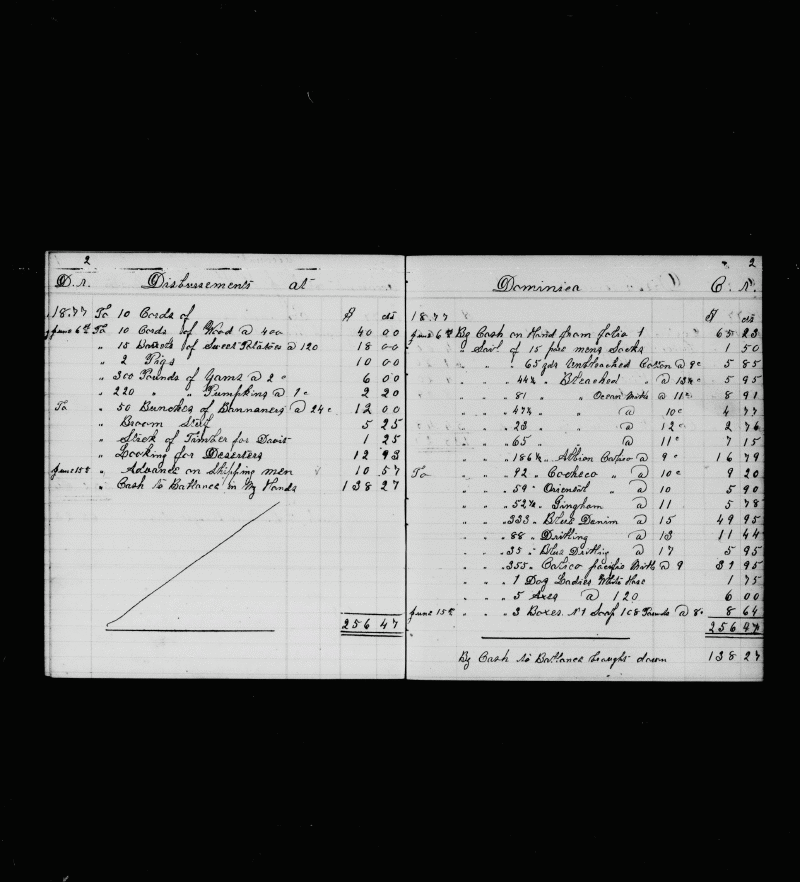 2
D.r. Disbursements at
1877 To 10 Cords of $ cts
June 6th To 10 Cords of Wood @ 400 40 00
" 15 Barrels of Sweet Potatoes @ 120 18 00
" 2 Pigs 10 00
" 300 Pounds of Yams @ 2c 6 00
" 220 " " Pumpkins @ 1c 2 20
To " 50 Bunches of Bannaners @ 24c 12 00
" Broom Stuf 5 25
" Stick of Timber for Davit 1 25
" Looking for Deserters 12 93
June 15th " Advance on Shipping men 10 57
" Cash to Ballance in My Hands 138 27
256 47
2
Dominica C.r.
1877 $ cts
June 6th By Cash on Hand from folio 1 65 23
" Sail. of 15 pair mens Socks 1 50
" " " 65 yds Unbleached Cotton @ 9c 5 85
" " " 44¼ " Bleached " @ 13½c 5 95
" " " 81 " " Ocean Mills @ 11c 8 91
" " " 47¾ " " @ 10c 4 77
" " " 23 " " @ 12c 2 76
" " " 65 " " @ 11c 7 15
" " " 186½ " Albion Calico @ 9c 16 79
To " " " 92 " Cocheco " @ 10c 9 20
" " " 59 " Orient " @ 10 5 90
" " " 52½ " Gingham @ 11 5 78
" " " 333 " Blue Denim @ 15 49 95
" " " 88 " Drilling @ 13 11 44
" " " 35 " Blue Drilling @ 17 5 95
" " " 355 " Calico pacific Mills @ 9 31 95
" " " 1 Doz Ladies White Hose 1 75
" " " 5 Axes @ 120 6 00
June 15th " " " 3 Boxes No 1 Soap 108 Pounds @ 8c 8 64
256 47
By Cash to Ballance braught down 138 27